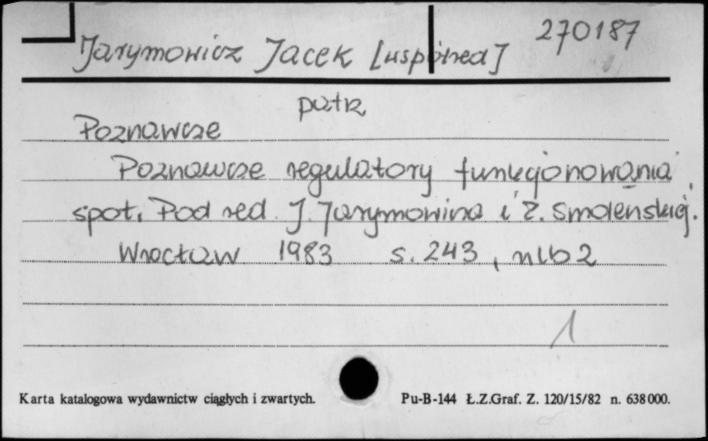 270187
Jarymowicz Jacek [współred]
patrz
Poznawcze
Poznawcze regulatory funkcjonowania
społ. Pod red. J. Jarymowicza i Z. Smoleńskiej.
Wrocław 1983 s. 243, nlb 2
1
Karta katalogowa wydawnictw ciągłych i zwartych. Pu-B-144 Ł.Z.Graf. Z. 120/15/82 n. 638000.